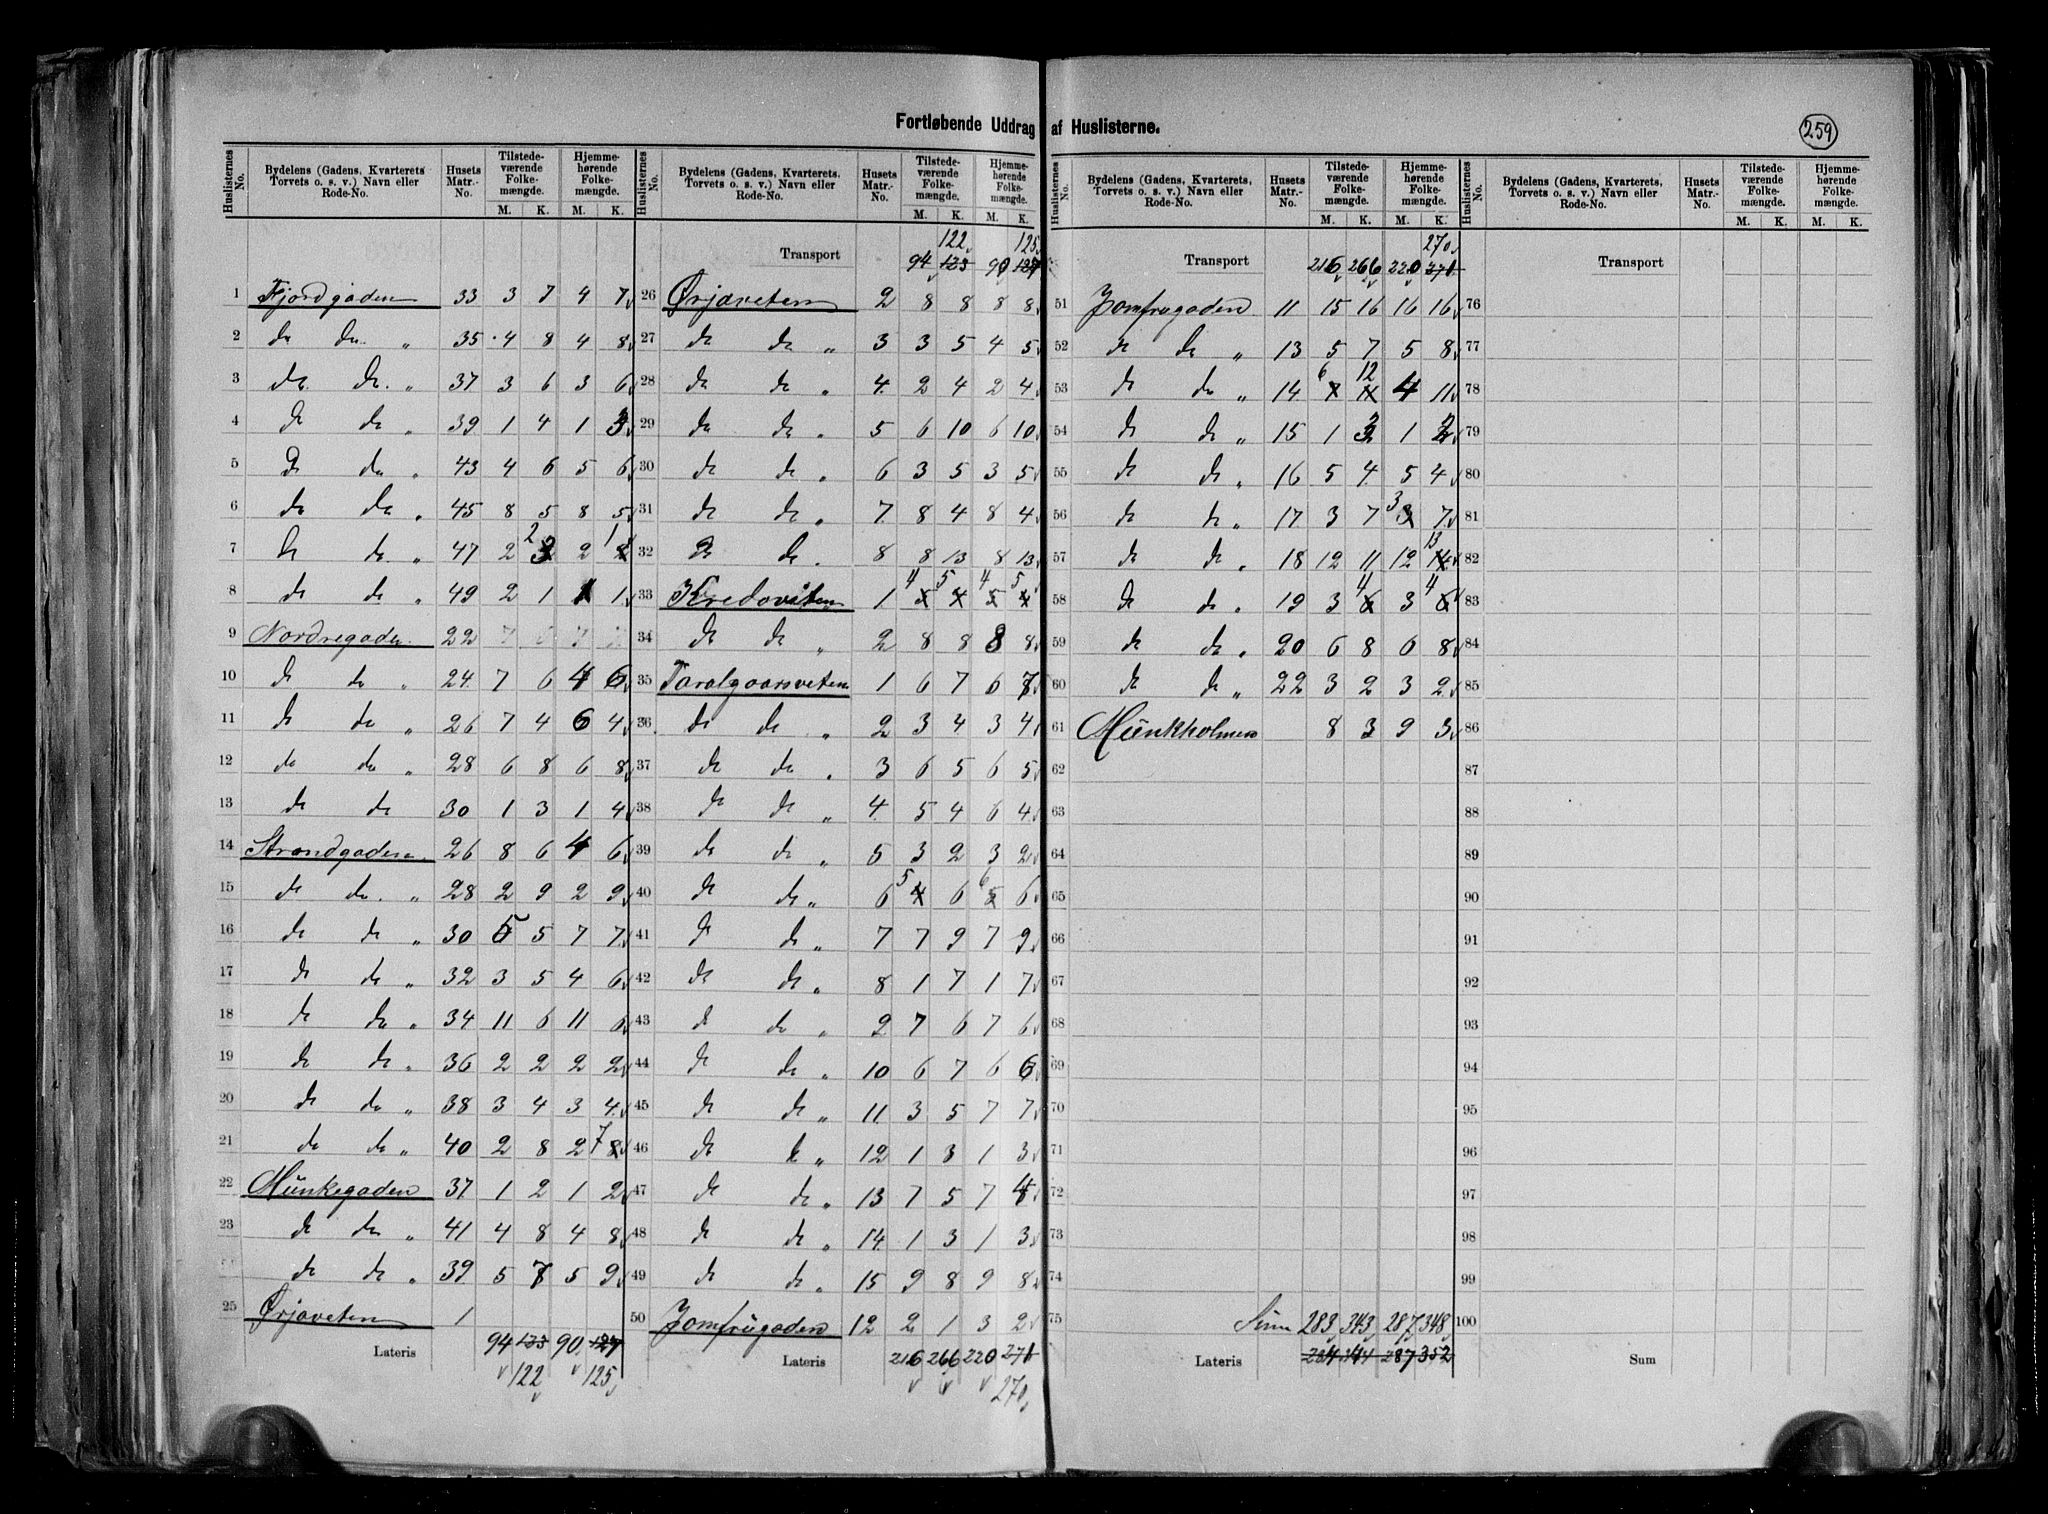 Fortløbende Uddrag af Huslisterne.
259
Huslisternes No. Bydelens (Gadens, Kvarterets, Torvets o. s. v.) Navn eller Rode-No. Husets Matr.-No. Tilstedeværende Folkemængde. M. K. Hjemmehørende Folkemængde. M. K.
1 Fjordgaden 33 3 7 4 7
2 do do " 35 4 8 4 8
3 do do " 37 3 6 3 6
4 do do " 39 1 4 1 3
5 do do " 43 4 6 5 6
6 do do " 45 8 5 8 5
7 do do " 47 2 2 2 1
8 do do " 49 2 1 1 1
9 Nordregaden 22
10 do do " 24 7 6 4 6
11 do do " 26 7 4 6 4
12 do do " 28 6 8 6 8
13 do do 30 1 3 1 4
14 Strandgaden 26 8 6 4 6
15 do do " 28 2 9 2 9
16 do do " 30 5 5 7 7
17 do do " 32 3 5 4 6
18 do do " 34 11 6 11 6
19 do do " 36 2 2 2 2
20 do do " 38 3 4 3 4
21 do do " 40 2 8 2 7 8
22 Munkegaden 37 1 2 1 2
23 do do " 41 4 8 4 8
do do " 39 5 7 5 9
25 Ørjaveten 1
Lateris 94 133 90 127
122 125
Huslisternes No. Bydelens (Gadens, Kvarterets, Torvets o. s. v.) Navn eller Rode-No. Husets Matr.-No. Tilstedeværende Folkemængde. M. K. Hjemmehørende Folkemængde. M. K.
122 125
Transport 94 123 90 127
26 Ørjaveten 2 8 8 8 8
27 do do " 3 3 5 4 5
28 do do " 4 2 4 2 4
29 do do " 5 6 10 6 10
30 do do " 6 3 5 3 5
31 do do " 7 8 4 8 4
32 do do " 8 8 13 8 13
33 Kredoveten 1 4 5 4 5
34 do do " 2 8 8 8 8
35 Taralgaarsveten 1 6 7 6 7
36 do do " 2 3 4 3 4
37 do do " 3 6 5 6 5
38 do do " 4 5 4 6 4
39 do do " 5 3 2 3 2
40 do do " 6 5 4 6 6 5 6
41 do do " 7 7 9 7 9
42 do do " 8 1 7 1 7
43 do do " 9 7 6 7 6
44 do do " 10 6 7 6 6
45 do do " 11 3 5 7 7
46 do do " 12 1 3 1 3
47 do do " 13 7 5 7 4
48 do do " 14 1 3 1 3
49 do do " 15 9 8 9 8
50 Jomfrugaden 12 2 1 3 2
Lateris 216 266 220 271
270
Huslisternes No. Bydelens (Gadens, Kvarterets, Torvets o. s. v.) Navn eller Rode-No. Husets Matr.-No. Tilstedeværende Folkemængde. M. K. Hjemmehørende Folkemængde. M. K.
270
Transport 216 266 220 271
51 Jomfrugaden 11 15 16 16 16
52 do do " 13 5 7 5 8
53 do do " 14 6 12 4 11
54 do do " 15 1 3 1 2
55 do do " 16 5 4 5 4
56 do do " 17 3 7 3 7
57 do do 18 12 11 12 13
58 do do " 19 3 4 6 3 4 6
59 do do " 20 6 8 6 8
60 do do " 22 3 2 3 2
61 Munkholmen 8 3 9 3
62
63
64
65
66
67
68
69
70
71
72
73
74
75 Sum 283 343 287 348
Lateris 284 344 287 352
Huslisternes No. Bydelens (Gadens, Kvarterets, Torvets o. s. v.) Navn eller Rode-No. Husets Matr.-No. Tilstedeværende Folkemængde. M. K. Hjemmehørende Folkemængde. M. K.
Transport
76
77
78
79
80
81
82
83
84
85
86
87
88
89
90
91
92
93
94
95
96
97
98
99
100
Sum